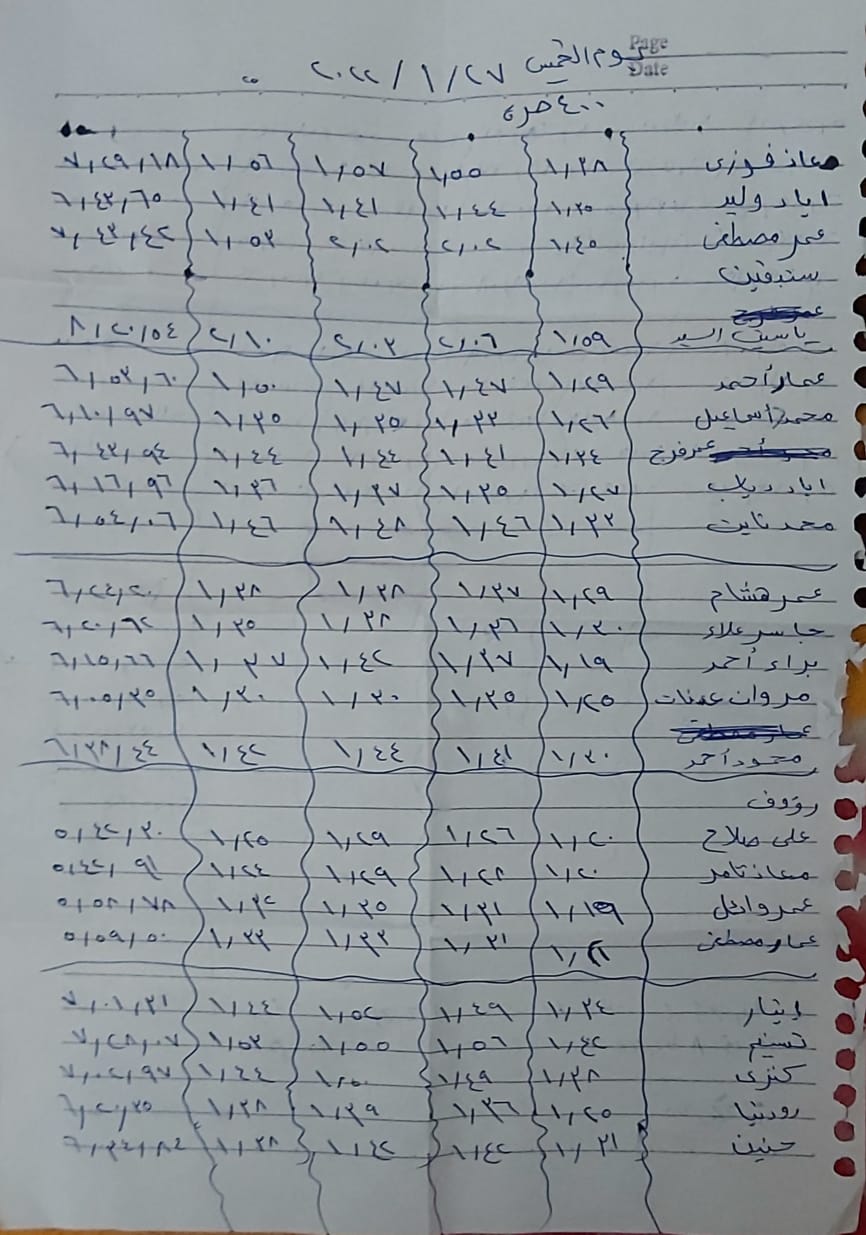 Page
يوم الخميس ٢٠٢٢/١/٢٧
Date
٤٠٠ حره
معاذ فوزى ١,٣٨ ١,٥٥ ١,٥٧ ١,٥٦ ٧,٢٩,١٨
اياد وليد ١,٣٥ ١,٤٤ ١,٤١ ١,٤١ ٦,٤٣,٦٥
عمر مصطفى ١,٤٥ ٢,٠٢ ٢,٠٢ ١,٥٣ ٧,٤٣,٤٢
سنبقين
ياسين السيد ١,٥٩ ٢,٠٦ ٢,٠٣ ٢,١٠ ٨,٢٠,٥٤
عمار أحمد ١,٢٩ ١,٤٧ ١,٤٧ ١,٥٠ ٦,٥٣,٦٠
محمد اسماعيل ١,٢٦ ١,٣٣ ١,٣٥ ١,٣٥ ٦,١٠,٩٧
عمر فرج ١,٣٤ ١,٤١ ١,٤٤ ١,٤٤ ٦,٤٣,٩٤
اياد دياب ١,٢٧ ١,٣٥ ١,٣٧ ١,٣٦ ٦,١٦,٩٦
محمد ثابت ١,٣٣ ١,٤٦ ١,٤٨ ١,٤٦ ٦,٥٤,٠٦
عمر هشام ١,٢٩ ١,٣٧ ١,٣٨ ١,٣٨ ٦,٢٤,٢٠
جاسر علاء ١,٣٠ ١,٣٦ ١,٣٨ ١,٣٥ ٦,٢٠,٦٢
براء أحمد ١,١٩ ١,٣٧ ١,٤٢ ١,٣٧ ٦,١٥,٦٦
مروان عدنان ١,٢٥ ١,٣٥ ١,٣٠ ١,٣٠ ٦,٠٥,٣٥
محمود أحمد ١,٣٠ ١,٤١ ١,٤٤ ١,٤٢ ٦,٣٨,٤٤
رؤوف
على صلاح ١,٢٠ ١,٢٦ ١,٢٩ ١,٢٥ ٥,٤٢,٣٠
معاذ تامر ١,٢٠ ١,٢٨ ١,٢٩ ١,٢٤ ٥,٤٢,٩١
عمر وائل ١,١٩ ١,٣١ ١,٣٥ ١,٣٢ ٥,٥٨,٧٨
عمار مصطفى ١,٣١ ١,٣٣ ١,٣٣ ٥,٥٩,٥٠
إيثار ١,٣٤ ١,٤٩ ١,٥٢ ١,٤٤ ٧,٠١,٣١
تسنيم ١,٤٢ ١,٥٦ ١,٥٥ ١,٥٣ ٧,٢٨,٠٧
كنزى ١,٣٨ ١,٤٩ ١,٥٠ ١,٤٤ ٧,٠٢,٩٧
رودينا ١,٢٥ ١,٣٦ ١,٣٩ ١,٣٨ ٦,٢٠,٣٥
حنين ١,٣١ ١,٤٢ ١,٤٢ ١,٣٨ ٦,٣٤,٨٤